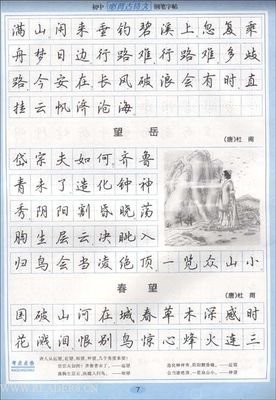 初中 必背古诗文 钢笔字帖
满山闲来垂钓碧溪上忽复乘
舟梦日边行路难行路难多歧
路今安在长风破浪会有时直
挂云帆济沧海
望岳
(唐)杜甫
岱宗夫如何齐鲁
青未了造化钟神
秀阴阳割昏晓荡
胸生层云决眦入
归鸟会当凌绝顶一览众山小
春望
(唐)杜甫
国破山河在城春草木深感时
花溅泪恨别鸟惊心烽火连三
考点点击
7